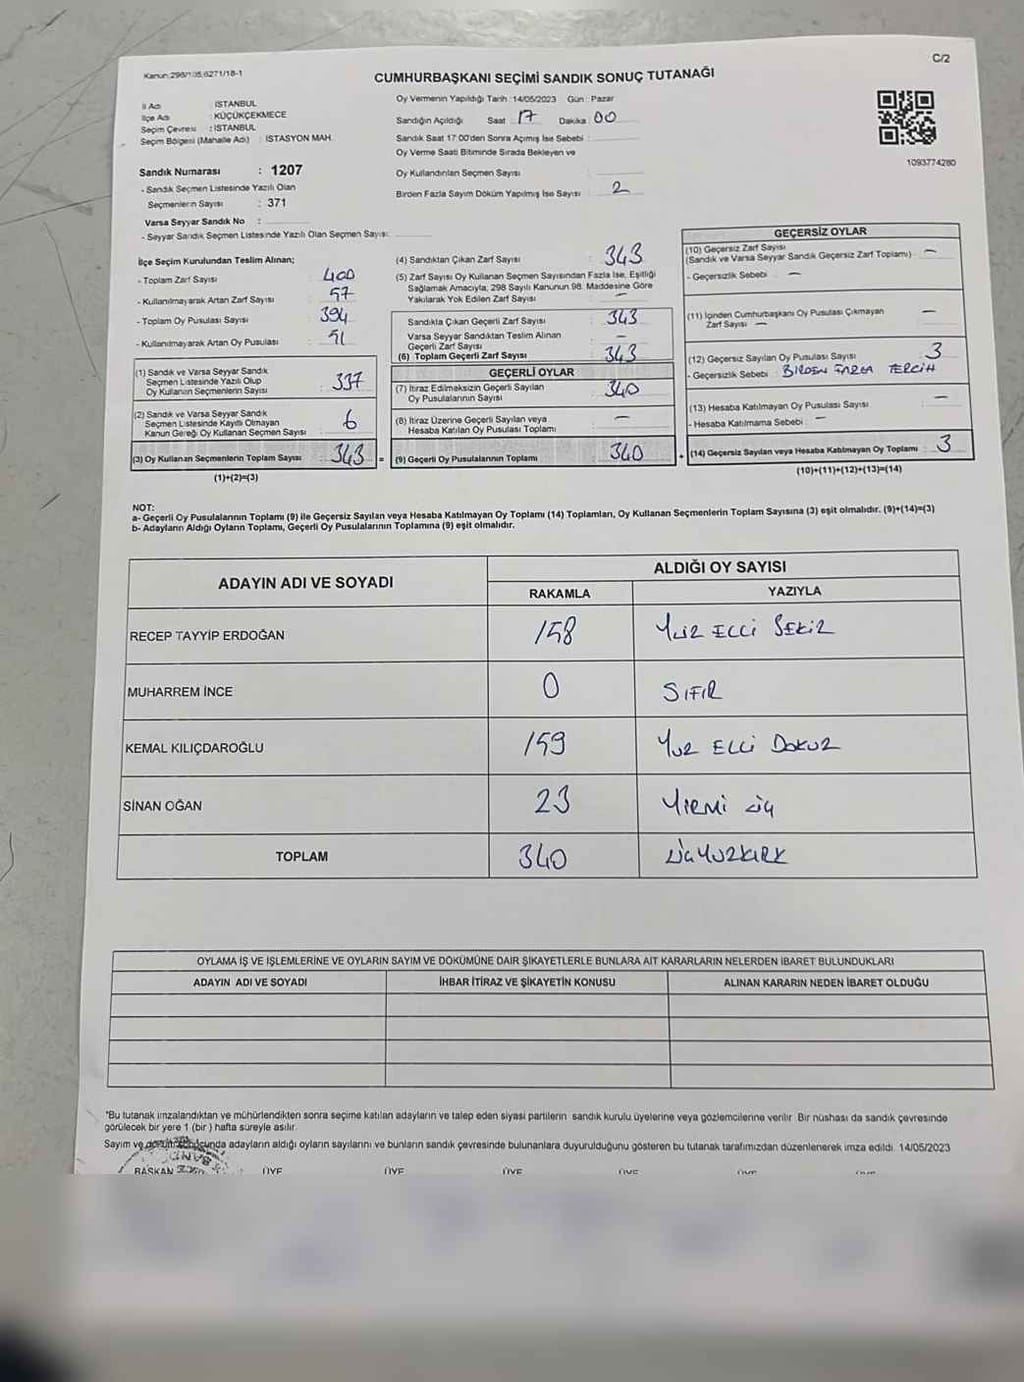 C/2
Kanun:298/105;6271/18-1
CUMHURBAŞKANI SEÇİMİ SANDIK SONUÇ TUTANAĞI
İl Adı : İSTANBUL
İlçe Adı : KÜÇÜKÇEKMECE
Seçim Çevresi : İSTANBUL
Seçim Bölgesi (Mahalle Adı) : İSTASYON MAH.
Sandık Numarası : 1207
- Sandık Seçmen Listesinde Yazılı Olan
Seçmenlerin Sayısı : 371
Varsa Seyyar Sandık No :
- Seyyar Sandık Seçmen Listesinde Yazılı Olan Seçmen Sayısı:
Oy Vermenin Yapıldığı Tarih :14/05/2023 Gün : Pazar
Sandığın Açıldığı Saat 17 Dakika 00
Sandık Saat 17:00'den Sonra Açılmış İse Sebebi :
Oy Verme Saati Bitiminde Sırada Bekleyen ve
Oy Kullandırılan Seçmen Sayısı :
Birden Fazla Sayım Döküm Yapılmış İse Sayısı : 2
1093774280
İlçe Seçim Kurulundan Teslim Alınan;
- Toplam Zarf Sayısı : 400
- Kullanılmayarak Artan Zarf Sayısı : 57
- Toplam Oy Pusulası Sayısı : 394
- Kullanılmayarak Artan Oy Pusulası : 51
(1) Sandık ve Varsa Seyyar Sandık
Seçmen Listesinde Yazılı Olup
Oy Kullanan Seçmenlerin Sayısı : 337
(2) Sandık ve Varsa Seyyar Sandık
Seçmen Listesinde Kayıtlı Olmayan
Kanun Gereği Oy Kullanan Seçmen Sayısı : 6
(3) Oy Kullanan Seçmenlerin Toplam Sayısı : 343 =
(1)+(2)=(3)
(4) Sandıktan Çıkan Zarf Sayısı : 343
(5) Zarf Sayısı Oy Kullanan Seçmen Sayısından Fazla İse, Eşitliği
Sağlamak Amacıyla; 298 Sayılı Kanunun 98. Maddesine Göre
Yakılarak Yok Edilen Zarf Sayısı : —
Sandıkta Çıkan Geçerli Zarf Sayısı : 343
Varsa Seyyar Sandıktan Teslim Alınan
Geçerli Zarf Sayısı : —
(6) Toplam Geçerli Zarf Sayısı : 343
GEÇERLİ OYLAR
(7) İtiraz Edilmeksizin Geçerli Sayılan
Oy Pusulalarının Sayısı : 340
(8) İtiraz Üzerine Geçerli Sayılan veya
Hesaba Katılan Oy Pusulası Toplamı : —
(9) Geçerli Oy Pusulalarının Toplamı : 340 +
GEÇERSİZ OYLAR
(10) Geçersiz Zarf Sayısı
(Sandık ve Varsa Seyyar Sandık Geçersiz Zarf Toplamı) : —
- Geçersizlik Sebebi : —
(11) İçinden Cumhurbaşkanı Oy Pusulası Çıkmayan
Zarf Sayısı : —
(12) Geçersiz Sayılan Oy Pusulası Sayısı : 3
- Geçersizlik Sebebi : BİRDEN FAZLA TERCİH
(13) Hesaba Katılmayan Oy Pusulası Sayısı : —
- Hesaba Katılmama Sebebi : —
(14) Geçersiz Sayılan veya Hesaba Katılmayan Oy Toplamı : 3
(10)+(11)+(12)+(13)=(14)
NOT:
a- Geçerli Oy Pusulalarının Toplamı (9) ile Geçersiz Sayılan veya Hesaba Katılmayan Oy Toplamı (14) Toplamları, Oy Kullanan Seçmenlerin Toplam Sayısına (3) eşit olmalıdır. (9)+(14)=(3)
b- Adayların Aldığı Oyların Toplamı, Geçerli Oy Pusulalarının Toplamına (9) eşit olmalıdır.
ADAYIN ADI VE SOYADI
ALDIĞI OY SAYISI
RAKAMLA YAZIYLA
RECEP TAYYİP ERDOĞAN 158 YÜZ ELLİ SEKİZ
MUHARREM İNCE 0 SIFIR
KEMAL KILIÇDAROĞLU 159 YÜZ ELLİ DOKUZ
SİNAN OĞAN 23 YİRMİ ÜÇ
TOPLAM 340 ÜÇYÜZKIRK
OYLAMA İŞ VE İŞLEMLERİNE VE OYLARIN SAYIM VE DÖKÜMÜNE DAİR ŞİKAYETLERLE BUNLARA AİT KARARLARIN NELERDEN İBARET BULUNDUKLARI
ADAYIN ADI VE SOYADI İHBAR İTİRAZ VE ŞİKAYETİN KONUSU ALINAN KARARIN NEDEN İBARET OLDUĞU
*Bu tutanak imzalandıktan ve mühürlendikten sonra seçime katılan adayların ve talep eden siyasi partilerin sandık kurulu üyelerine veya gözlemcilerine verilir. Bir nüshası da sandık çevresinde
görülecek bir yere 1 (bir ) hafta süreyle asılır.
Sayım ve dökümün sonucunda adayların aldığı oyların sayılarını ve bunların sandık çevresinde bulunanlara duyurulduğunu gösteren bu tutanak tarafımızdan düzenlenerek imza edildi. 14/05/2023
BAŞKAN ÜYE ÜYE ÜYE ÜYE ÜYE